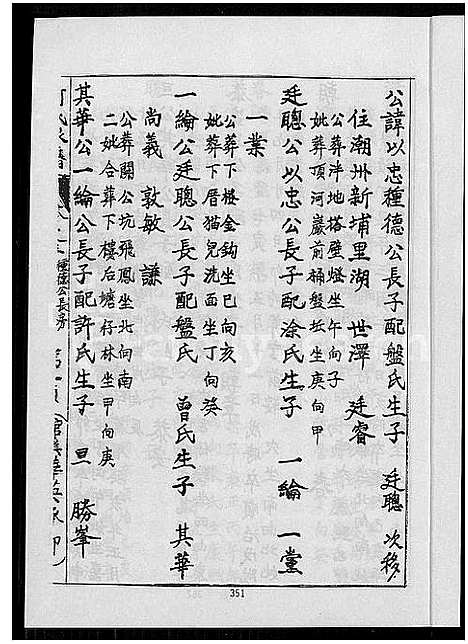 公諱以忠種德公長子配盤氏生子 廷聰 次移
住潮州新埔里湖 世澤 廷睿
公葬泮地塔壁燈坐午向子
妣葬頂河巖前桶盤坵坐庚向甲
廷聰公以忠公長子配涂氏生子 一綸 一黨
一業
公葬下樓金鈎坐巳向亥
妣葬下厝猫兒洗面坐丁向癸
一綸公廷聰公長子配盤氏 曾氏生子 其華
尚義 敦敏 謙
公葬關公坑飛鳳坐北向南
二妣合葬下樓后塘仔林坐甲向庚
其華公一綸公長子配許氏生子 旦 勝峯
種德公長房
351